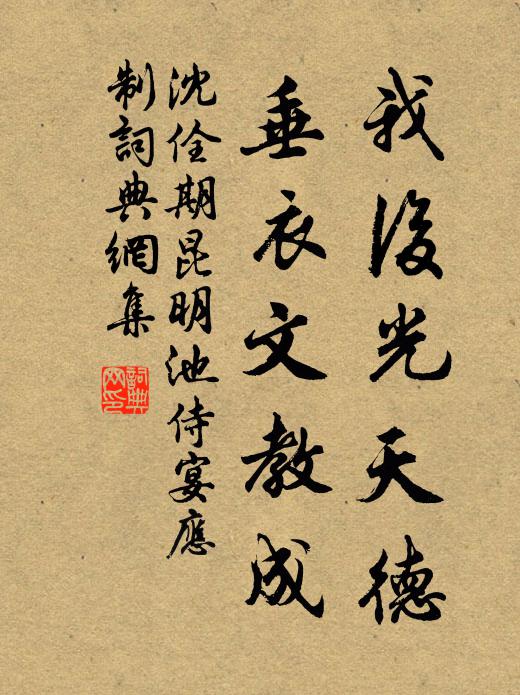 我後光天德
垂衣文教成
沈佺期昆明池侍宴應
制詞典網集
詞典
网印